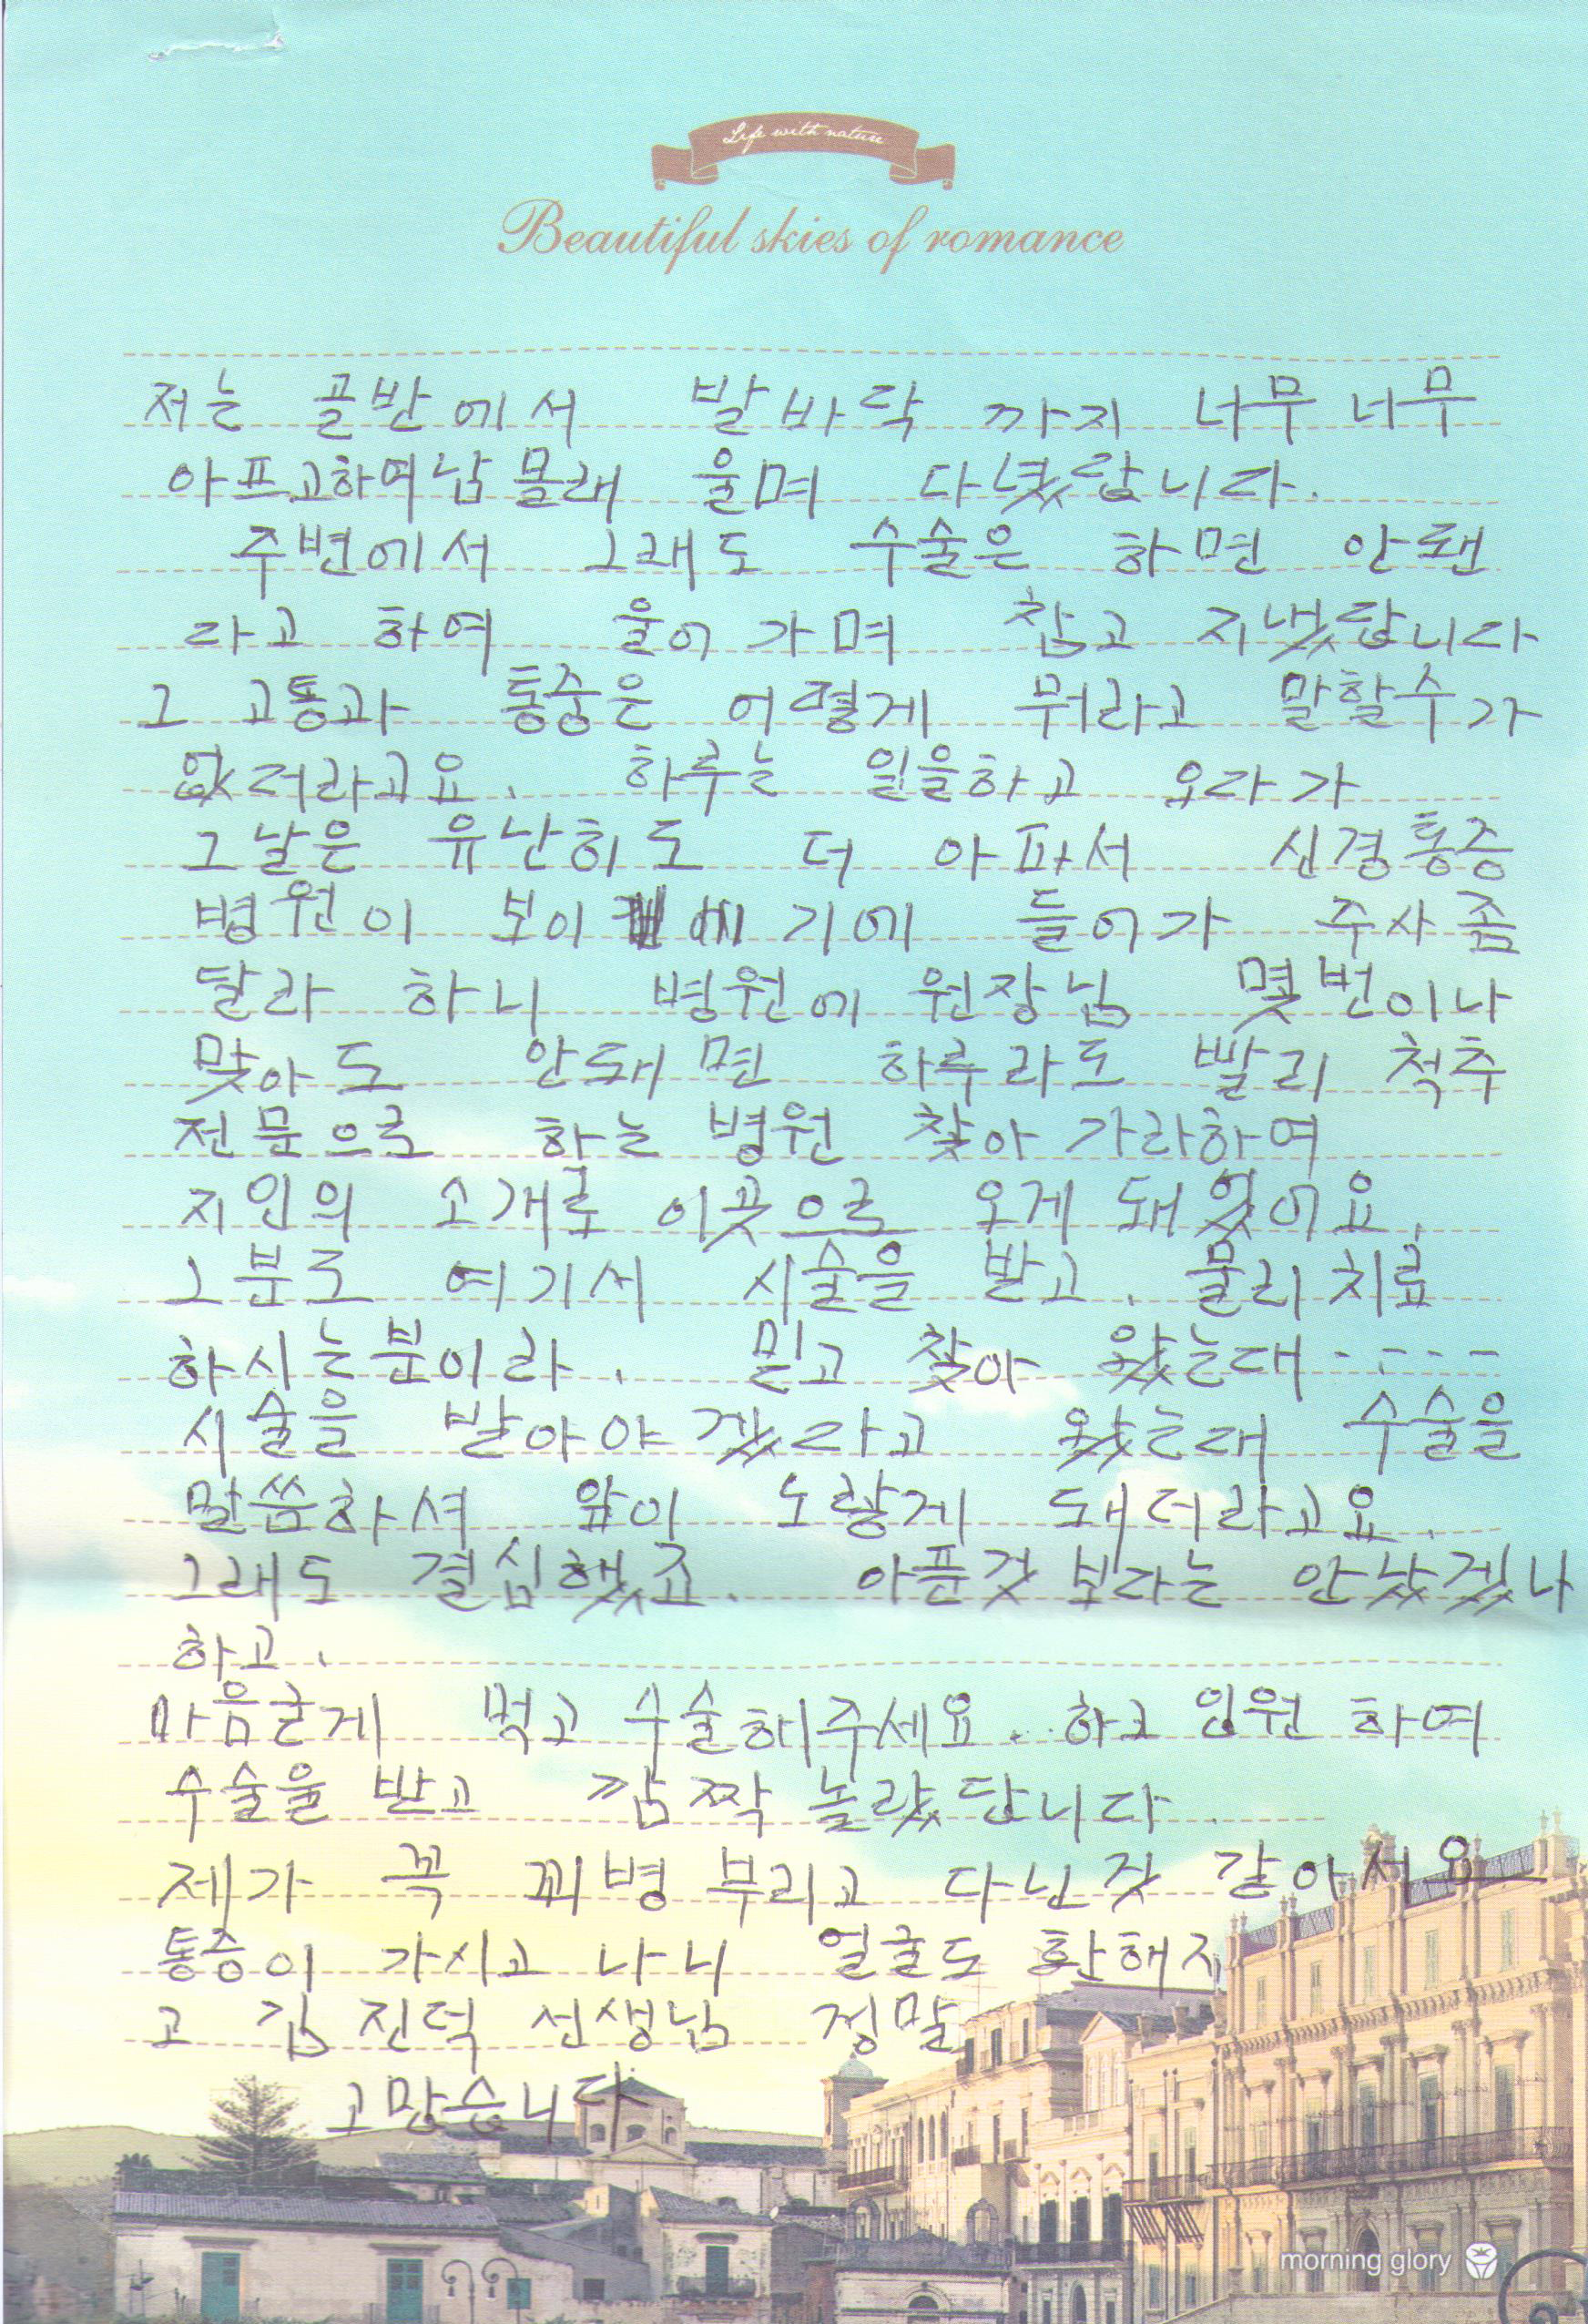 Life with nature
Beautiful skies of romance
저는 골반에서 발바닥 까지 너무너무
아프고하여 남몰래 울며 다녔답니다.
주변에서 그래도 수술은 하면 안됀
라고 하여 울어가며 참고 지냈답니다
그 고통과 통중은 어떻게 뭐라고 말할수가
없더라고요. 하루는 일을하고 오다가
그날은 유난히도 더 아파서 신경통증
병원이 보이 기에 들어가 주사좀
달라 하니 병원에 원장님 몇번이나
맞아도 안돼면 하루라도 빨리 척추
전문으로 하는 병원 찾아가라하여
지인의 소개로 이곳으로 오게 돼었어요.
그분도 여기서 시술을 받고. 물리치료
하시는분이라. 믿고 찾아 왔는대-----
시술을 받아야겠다고 왔는대 수술을
말씀하셔 앞이 노랗게 돼더라고요.
그래도 결심했죠. 아픈것 보다는 안낳겠나
하고.
마음굳게 먹고 수술해주세요. 하고 입원 하여
수술을 받고 깜짝 놀랐답니다.
제가 꼭 꾀병 부리고 다닌것 같아서요
통증이 가시고 나니 얼굴도 환해지
고 김진덕 선생님 정말
고맙습니다
morning glory